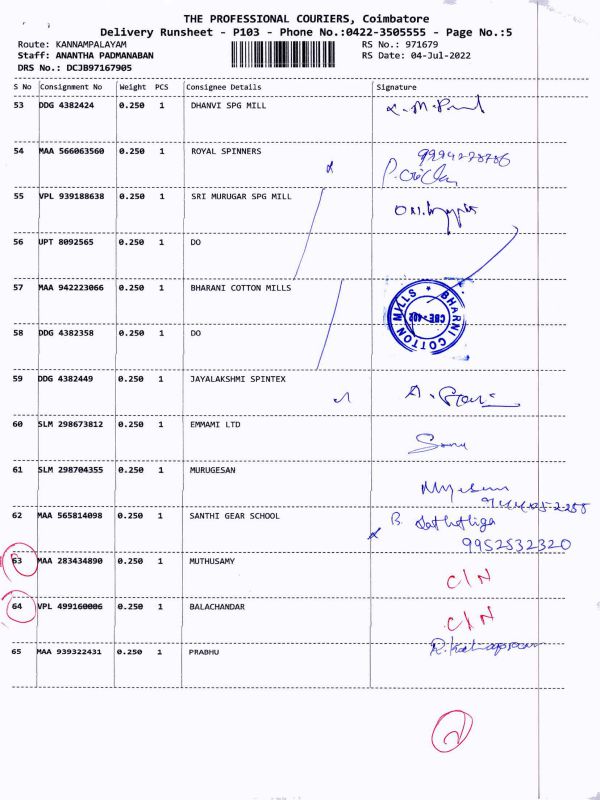 THE PROFESSIONAL COURIERS, Coimbatore
Delivery Runsheet - P103 - Phone No.:0422-3505555 - Page No.:5
Route: KANNAMPALAYAM RS No.: 971679
Staff: ANANTHA PADMANABAN RS Date: 04-Jul-2022
DRS No.: DCJB97167905
S No Consignment No Weight PCS Consignee Details Signature
53 DDG 4382424 0.250 1 DHANVI SPG MILL
54 MAA 566063560 0.250 1 ROYAL SPINNERS 9994278786
55 VPL 939188638 0.250 1 SRI MURUGAR SPG MILL
56 UPT 8092565 0.250 1 DO
57 MAA 942223066 0.250 1 BHARANI COTTON MILLS
BHARNI COTTON MILLS
58 DDG 4382358 0.250 1 DO
59 DDG 4382449 0.250 1 JAYALAKSHMI SPINTEX
60 SLM 298673812 0.250 1 EMMAMI LTD
61 SLM 298704355 0.250 1 MURUGESAN
62 MAA 565814098 0.250 1 SANTHI GEAR SCHOOL
9952532320
63 MAA 283434890 0.250 1 MUTHUSAMY C/N
64 VPL 499160006 0.250 1 BALACHANDAR C/N
65 MAA 939322431 0.250 1 PRABHU